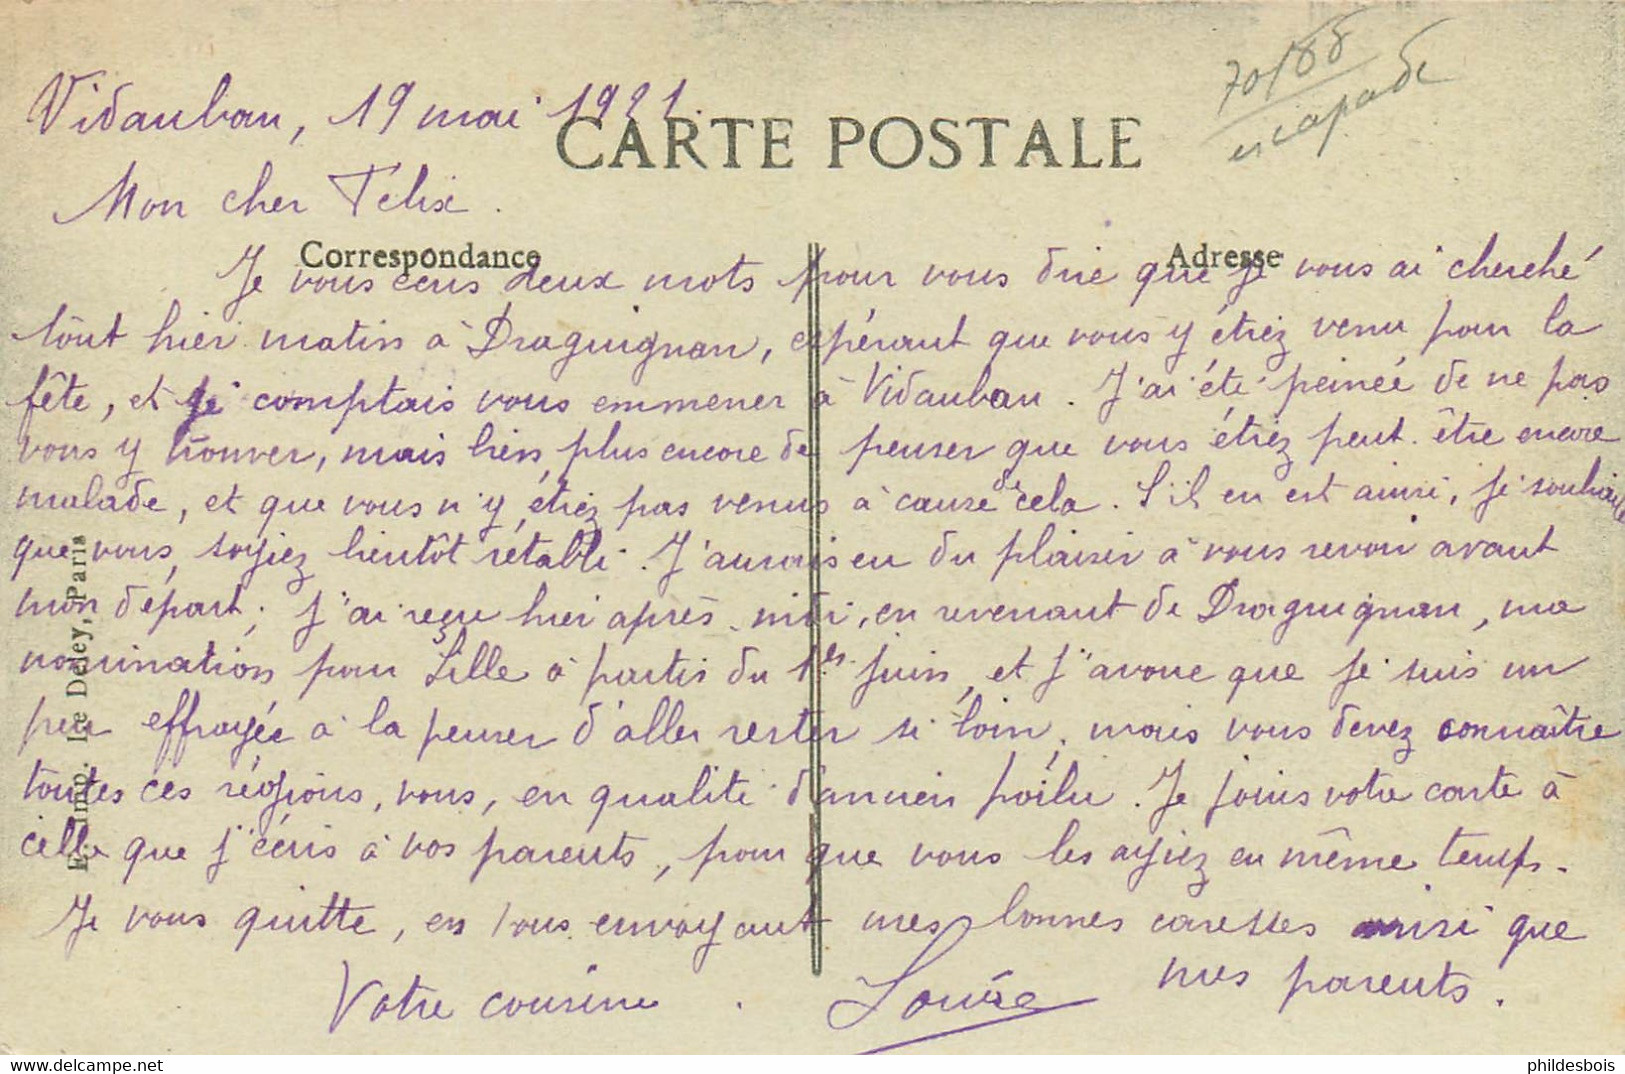 70/88
escapade
Vidauban, 19 mai 1921.
CARTE POSTALE
Mon cher Félix.
Correspondance
Adresse
Je vous écris deux mots pour vous dire que je vous ai cherché
tout hier matin à Draguignan, espérant que vous y étiez venu pour la
fête, et je comptais vous emmener à Vidauban. J'ai été peinée de ne pas
vous y trouver, mais bien plus encore de penser que vous étiez peut-être encore
malade, et que vous n'y étiez pas venus à cause de cela. S'il en est ainsi, je souhaite
que vous soyiez bientôt rétabli. J'aurais eu du plaisir à vous revoir avant
mon départ; j'ai reçu hier après-midi, en revenant de Draguignan, ma
nomination pour Lille à partir du 1er Juin, et j'avoue que je suis un
peu effrayée à la penser d'aller rester si loin; mais vous devez connaître
toutes ces régions, vous, en qualité d'ancien poilu. Je joins votre carte à
celle que j'écris à vos parents, pour que vous les ayiez en même temps.
Je vous quitte, en vous envoyant mes bonnes caresses ainsi que
mes parents.
Votre cousine. Louise
E. Imp. Le Deley, Paris
https://www.delcampe.net
phildesbois